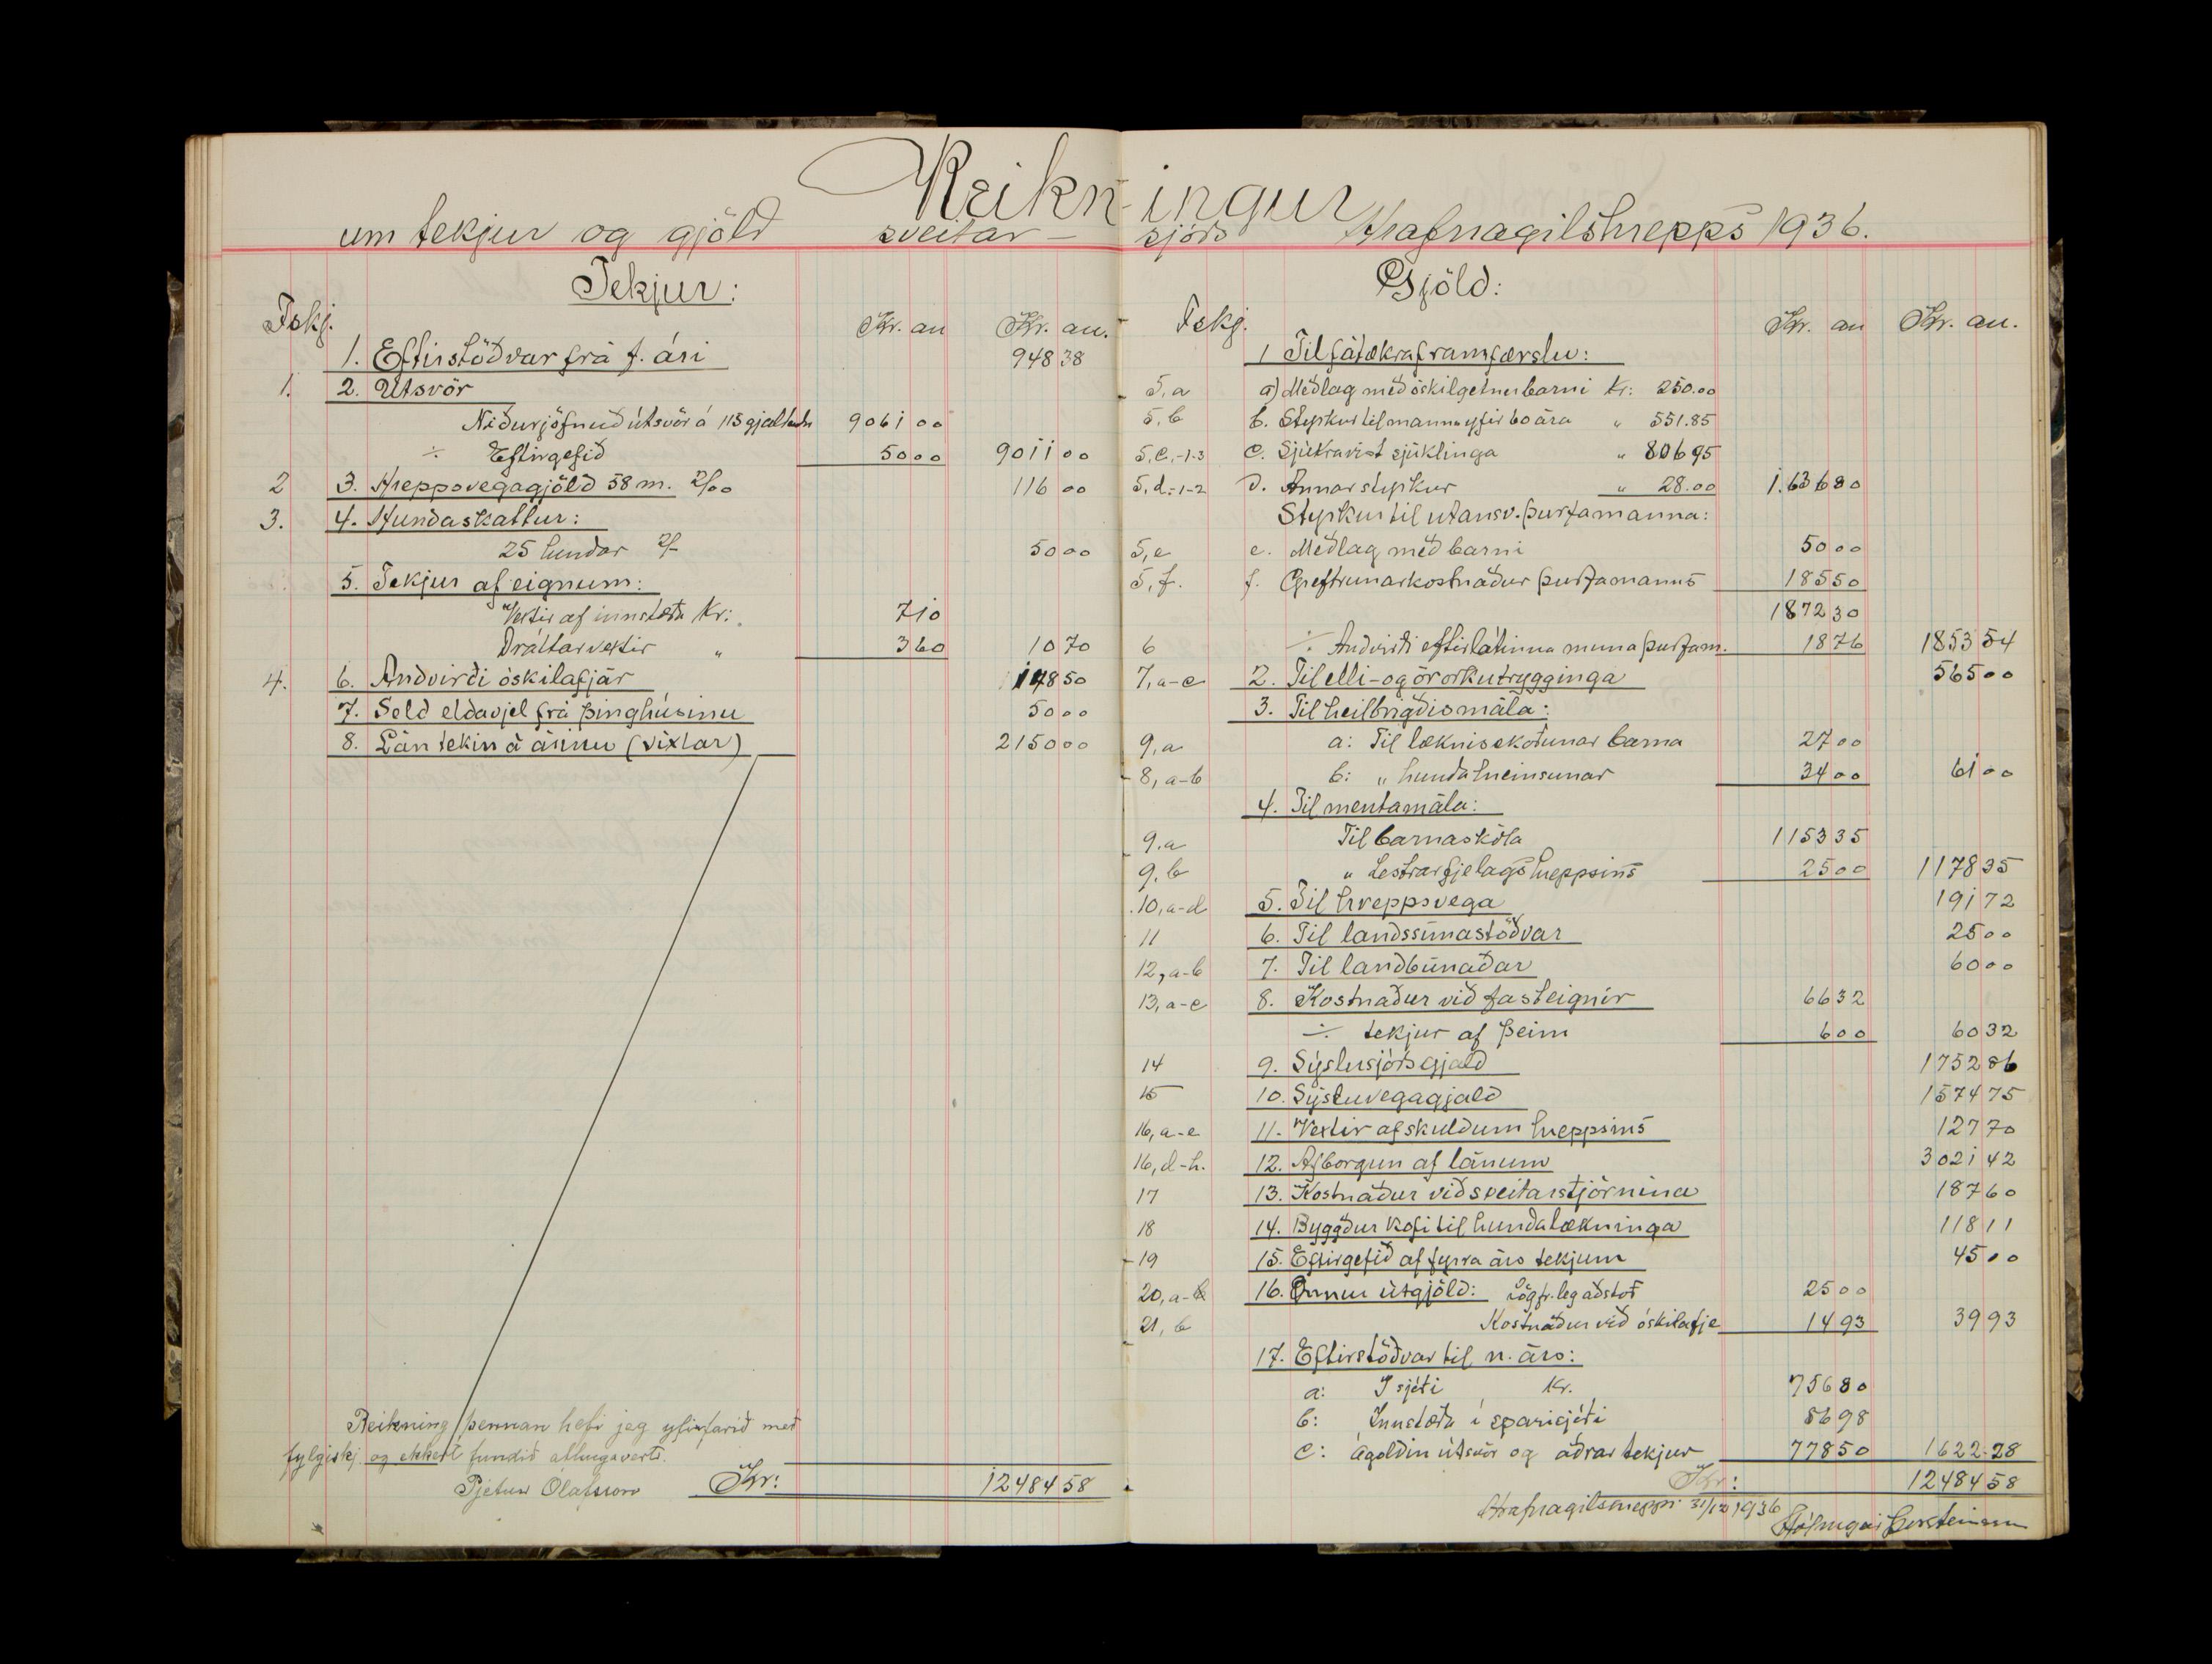 Reikningur
um tekjur og gjöld sveitar-sjóðs Hrafnagilshrepps 1936.
Tekjur:
Fskj. Kr. au Kr. au.
1. Eftirstöðvar frá f. ári 948 38
1. 2. Útsvör
Niðurjöfnuð útsvör á 115 gjaldendur 9061 00
÷ Eftirgefið 50 00 9011 00
2 3. Hreppsvegagjöld 58 m. 2/00 116 00
3. 4. Hundaskattur:
25 hundar 2/- 50 00
5. Tekjur af eignum:
Vextir af innstæðu Kr: 7 10
Dráttarvextir „ 3 60 10 70
4. 6. Andvirði óskilafjár 148 50
7. Seld eldavjel frá þinghúsinu 50 00
8. Lán tekin á árinu (víxlar) 2150 00
Reikning þennan hefi jeg yfirfarið með
fylgiskj. og ekkert fundið athugavert.
Pjetur Ólafsson
Kr: 12484 58
Gjöld:
Fskj. Kr. au Kr. au.
1 Til fátækraframfærslu:
5,a a) Meðlag með óskilgetnu barni Kr: 250.00
5.b b. Styrkur til manna yfir 60 ára „ 551.85
5,c,-1-3 c. Sjúkravist sjúklinga „ 806 95
5,d,-1-2 d. Annar styrkur „ 28.00 1.636 80
Styrkur til utansv. þurfamanna:
5,e e. Meðlag með barni 50 00
5,f. f. Greftrunarkostnaður þurfamanns 185 50
1872 30
6 ÷ Andvirði eftirlátinna muna þurfam. 18 76 1853 54
7,a-c 2. Til elli- og örorkutrygginga 565 00
3. Til heilbrigðismála:
9,a a: Til læknisskoðunar barna 27 00
8,a-b b: „ hundahreinsunar 34 00 61 00
4. Til mentamála:
9.a Til barnaskóla 1153 35
9.b „ Lestrarfjelags hreppsins 25 00 1178 35
10,a-d 5. Til hreppsvega 191 72
11 6. Til landssímastöðvar 25 00
12,a-b 7. Til landbúnaðar 60 00
13,a-c 8. Kostnaður við fasteignir 66 32
÷ tekjur af þeim 6 00 60 32
14 9. Sýslusjóðsgjald 1752 86
15 10. Sýsluvegagjald 1574 75
16,a-e 11. Vextir af skuldum hreppsins 127 70
16,d-h. 12. Afborgun af lánum 3021 42
17 13. Kostnaður við sveitarstjórnina 187 60
18 14. Byggður kofi til hundalækninga 118 11
19 15. Eftirgefið af fyrra árs tekjum 45 00
20,a-b 16. Önnur útgjöld: Lögfr.leg aðstoð 25 00
21, b Kostnaður við óskilafje 14 93 39 93
17. Eftirstöðvar til n. árs:
a: Í sjóði Kr. 756 80
b: Innstæða í sparisjóði 86 98
c: Ógoldin útsvör og aðrar tekjur 778 50 1622.28
Kr: 12484 58
Hrafnagilshreppi 31/12 1936
Hólmgeir Þorsteinsson